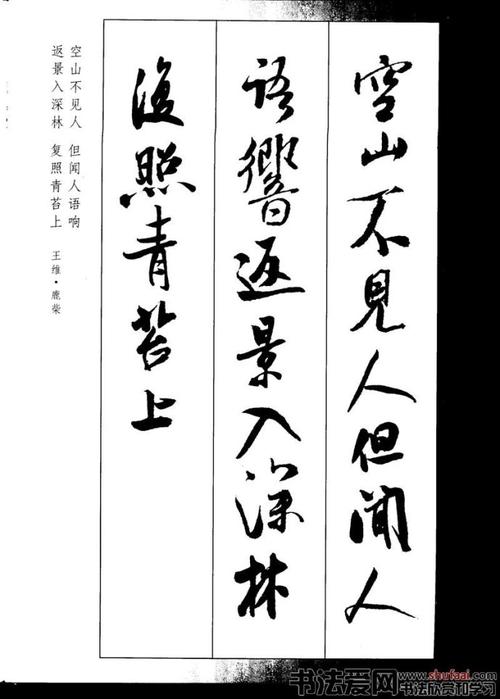 空山不見人但聞人
語響返景入深林
復照青苔上
空山不见人 但闻人语响
返景入深林 复照青苔上
王维·鹿柴
书法爱网
www.shufaai.com
书法欣赏和学习